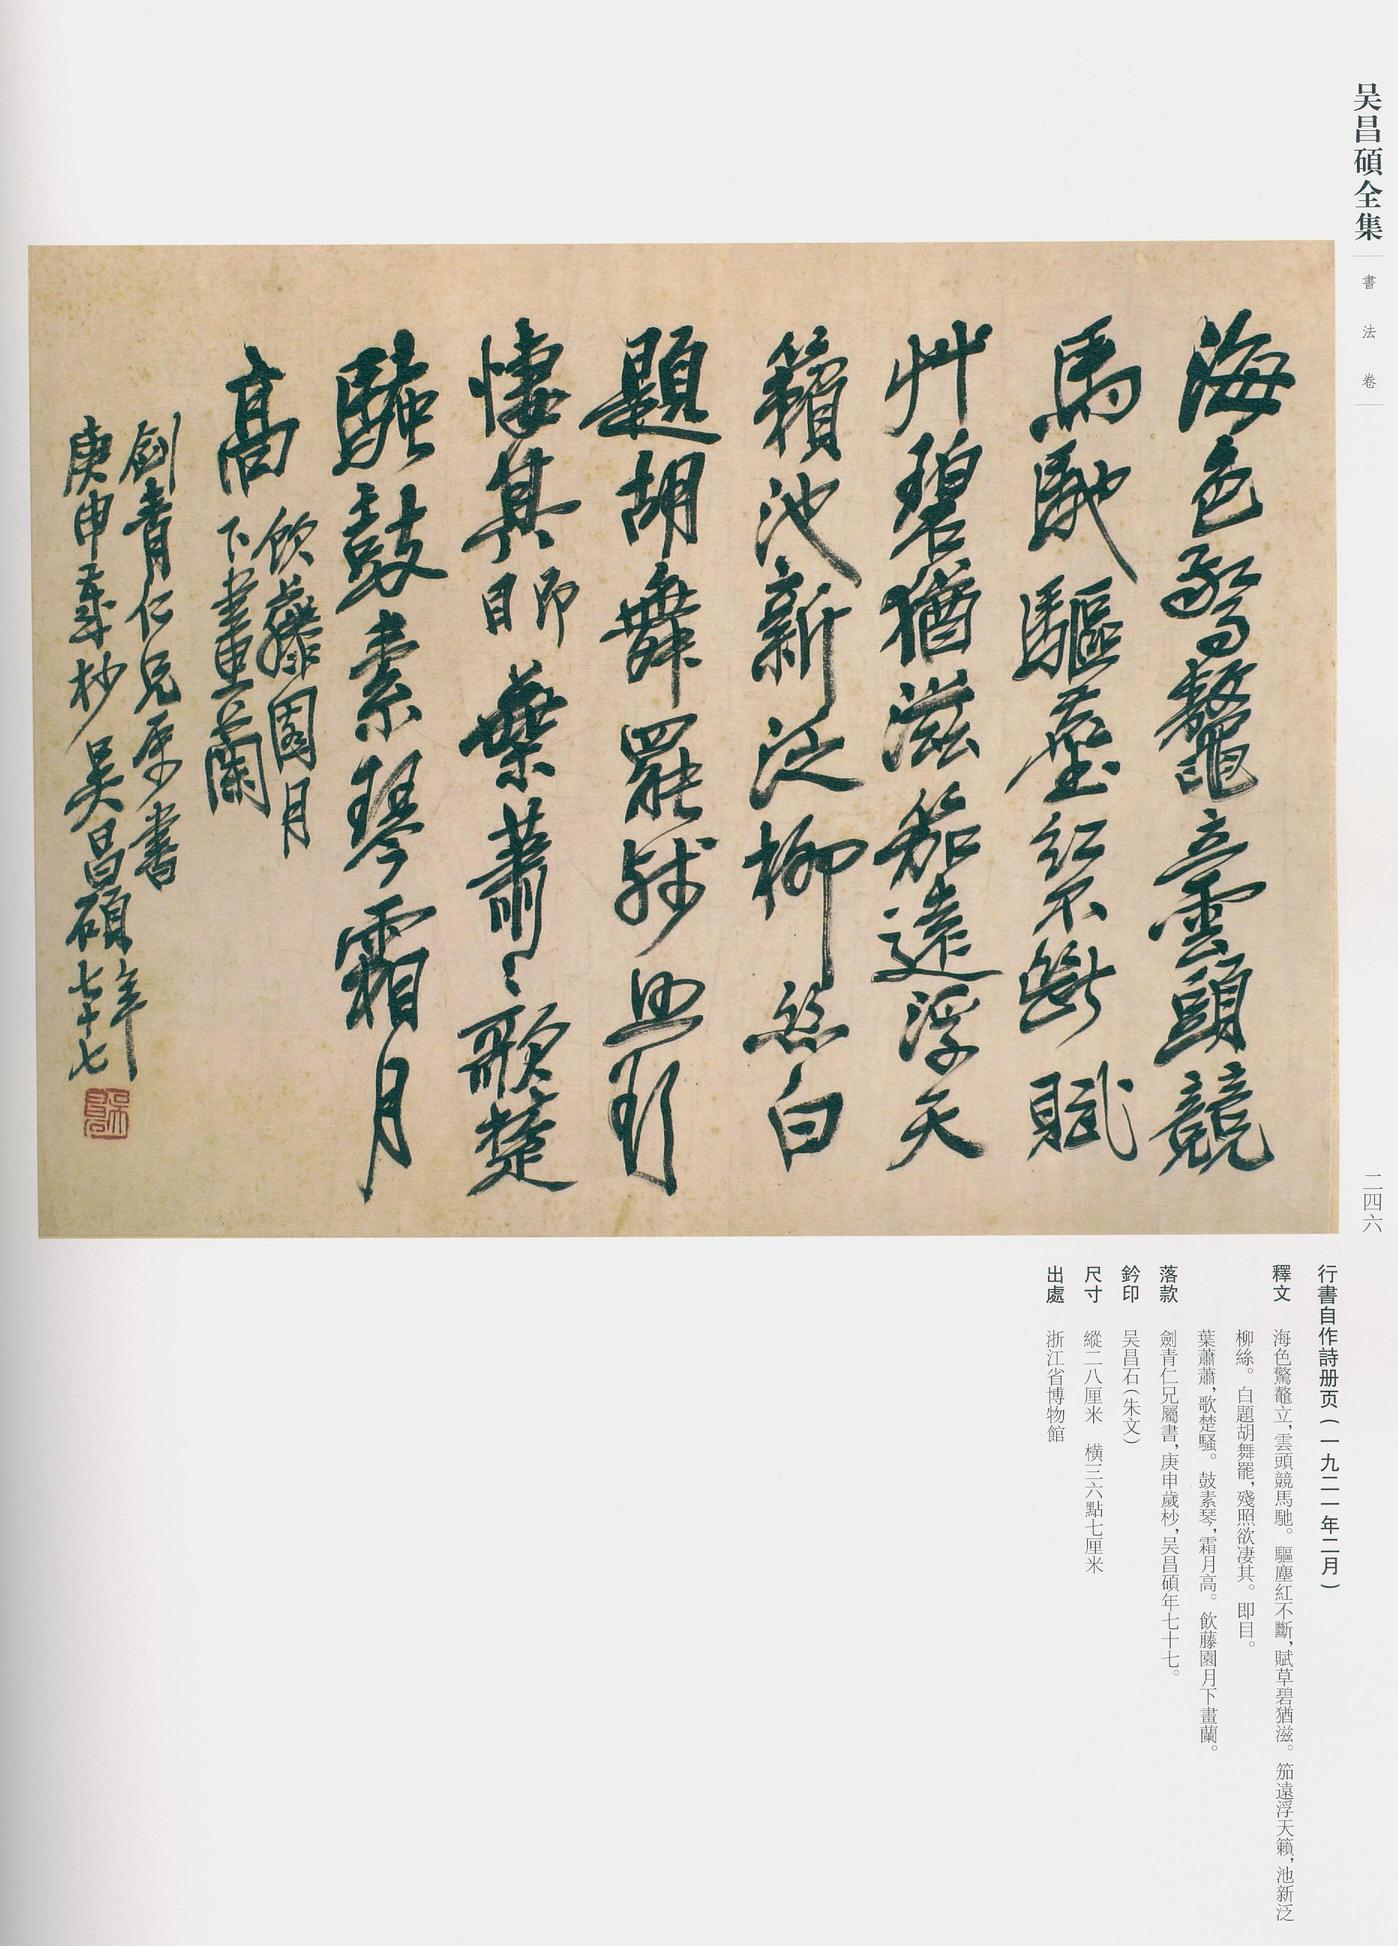 吴昌碩全集
書法卷
二四六
海色驚鼇立雲頭競
馬馳驅塵紅不斷賦
艸碧猶滋笳遠浮天
籟池新泛柳絲白
題胡舞罷殘照欲
悽其即目葉蕭〻歌楚
騷鼓素琴霜月
高飲藤園月
下畫蘭
劍青仁兄屬書
庚申歲杪吴昌碩年七十七
行書自作詩册页(一九二一年二月)
釋文 海色驚鼇立,雲頭競馬馳。驅塵紅不斷,賦草碧猶滋。笳遠浮天籟,池新泛
柳絲。白題胡舞罷,殘照欲凄其。即目。
葉蕭蕭,歌楚騷。鼓素琴,霜月高。飲藤園月下畫蘭。
落款 劍青仁兄屬書,庚申歲杪,吴昌碩年七十七。
鈐印 吴昌石(朱文)
尺寸 縱二八厘米 橫三六點七厘米
出處 浙江省博物館